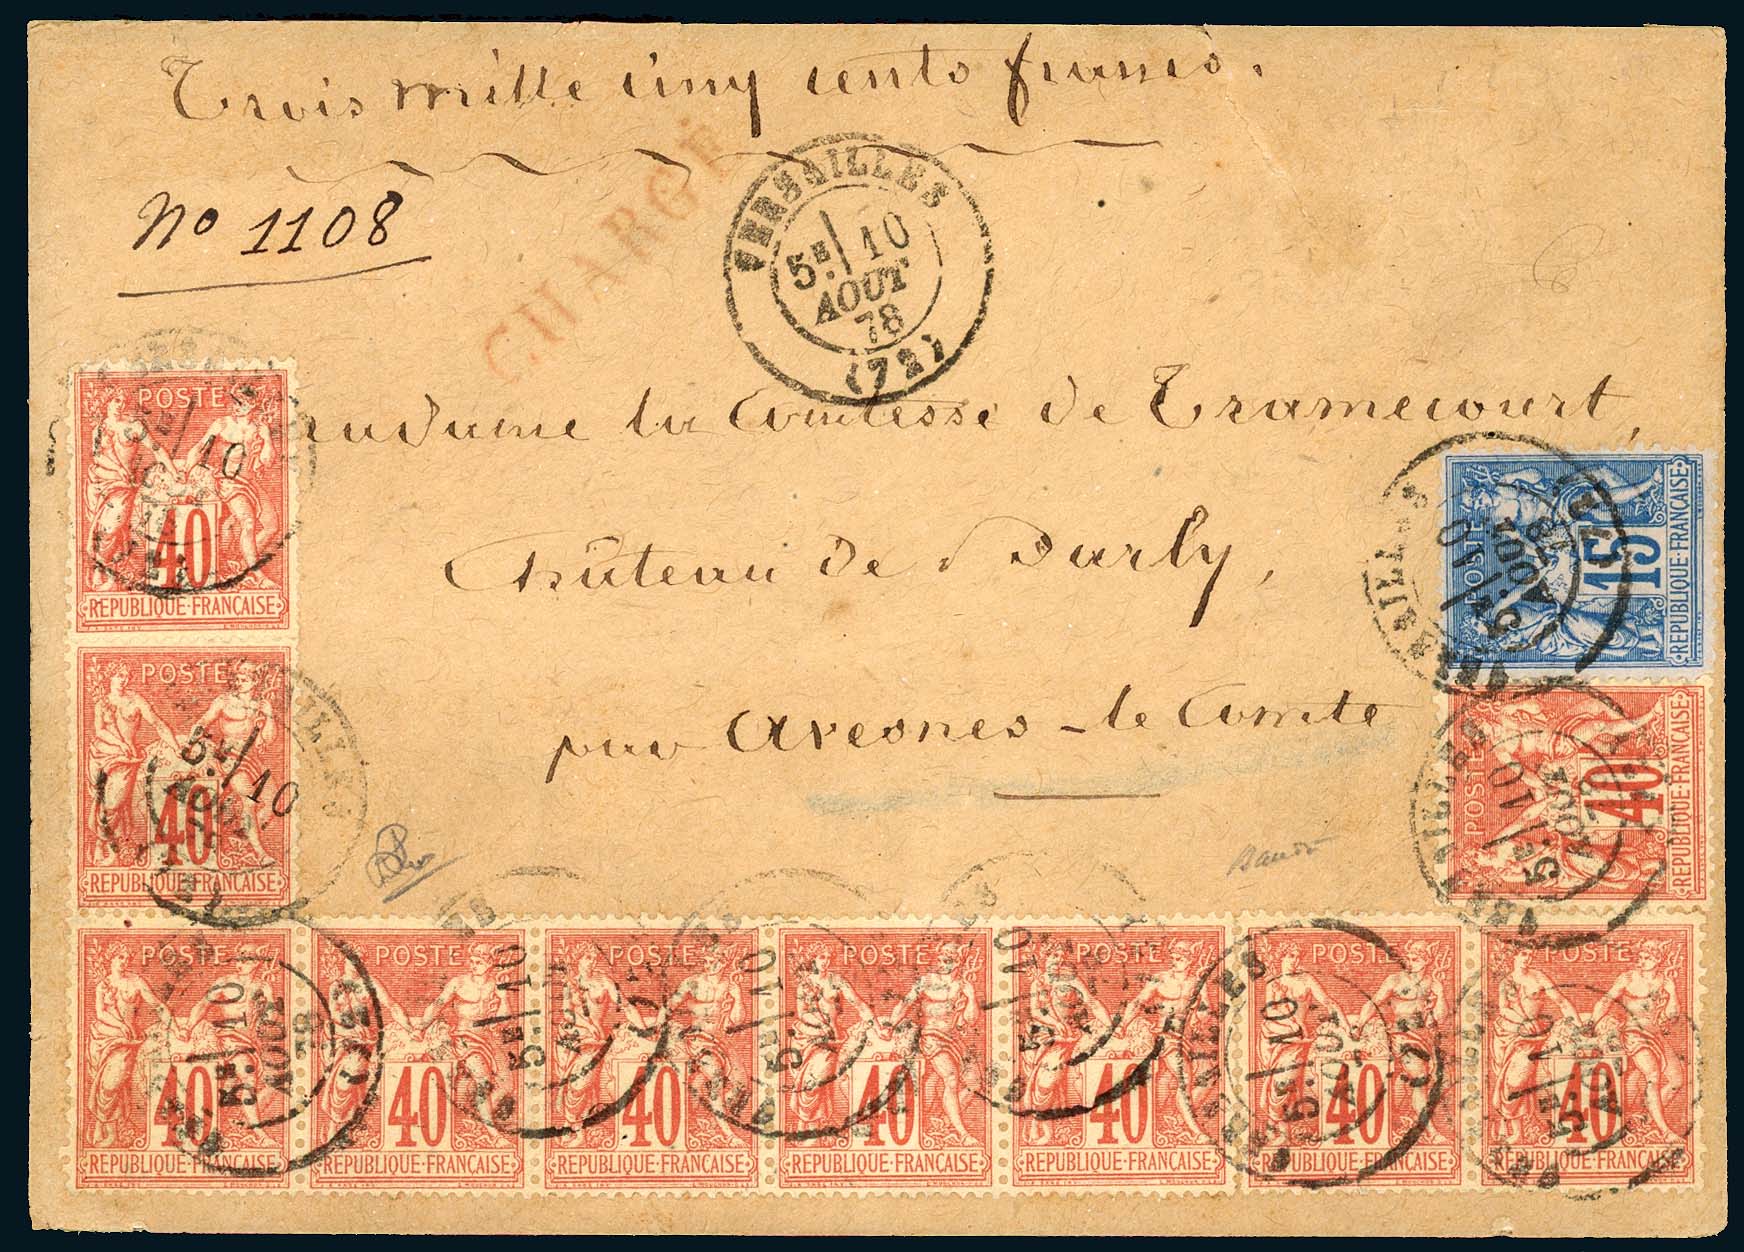 Trois mille cinq cents francs.
No 1108
CHARGÉ
VERSAILLES
5E 10
AOUT
78
(72)
Madame la Comtesse de Tramecourt,
Château de Barly,
par Avesnes-le Comte
POSTE
40
REPUBLIQUE FRANÇAISE
POSTE
40
REPUBLIQUE FRANÇAISE
POSTE
15
REPUBLIQUE FRANÇAISE
POSTE
40
REPUBLIQUE FRANÇAISE
POSTE POSTE POSTE POSTE POSTE POSTE POSTE
40 40 40 40 40 40 40
REPUBLIQUE FRANÇAISE REPUBLIQUE FRANÇAISE REPUBLIQUE FRANÇAISE REPUBLIQUE FRANÇAISE REPUBLIQUE FRANÇAISE REPUBLIQUE FRANÇAISE REPUBLIQUE FRANÇAISE